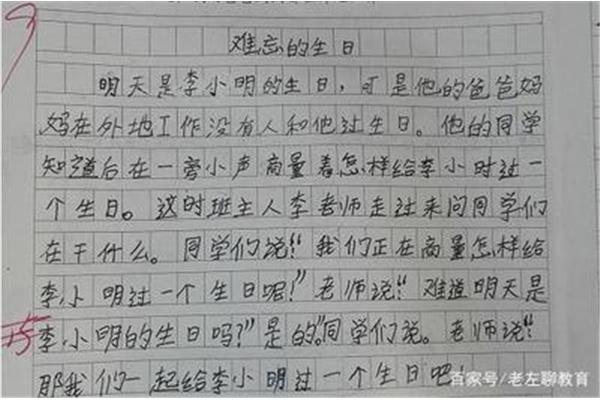 难忘的生日
明天是李小明的生日，可是他的爸爸妈
妈在外地工作没有人和他过生日。他的同学
知道后在一旁小声商量着怎样给李小时过一
个生日。这时班主人李老师走过来问同学们
在干什么。同学们说“我们正在商量怎样给
李小明过一个生日呢？”老师说“难道明天是
李小明的生日吗？”是的”同学们说。老师说“
那我们一起给李小明过一个生日吧
百家号/老左聊教育